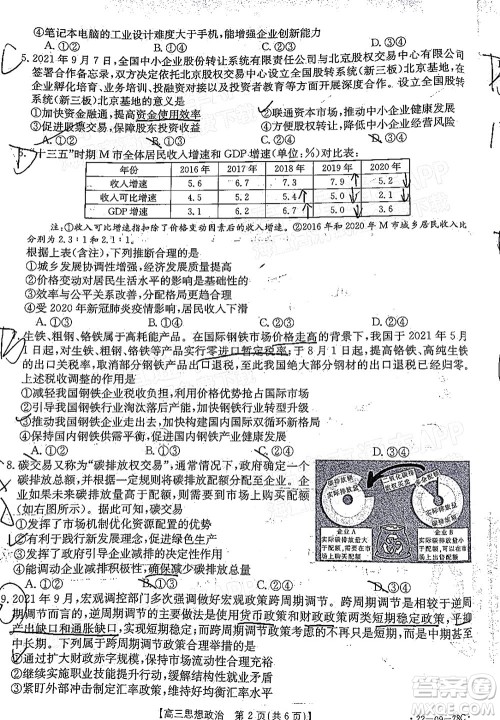 ④笔记本电脑的工业设计难度大于手机,能增强企业创新能力
A.①②　B.①③　C.②④　D.③④
5.2021年9月7日,全国中小企业股份转让系统有限责任公司与北京股权交易中心有限公司
签署合作备忘录,双方决定依托北京股权交易中心开展全国股转系统(新三板)北京基地,在
企业孵化培育、业务培训、投资对接以及投资者教育等方面开展深度合作。建立全国股转系
统(新三板)北京基地的意义是
①加快资金融通,提高资金使用效率　②联通资本市场,推动中小企业健康发展
③促进股票交易,保障股民投资收益　④降低交易成本,规避中小企业市场风险
A.①②　B.①③　C.②④　D.③④
6.“十三五”时期M市全体居民收入增速和GDP增速(单位:%)对比表:
年份　2016年　2017年　2018年　2019年　2020年
收入增速　5.6　6.7　7.3　7.9　5.2
收入可比增速　4.1　6.2　5.5　5.0　2.4
GDP增速　3.1　6.2　5.5　5.0　3.6
注:①收入可比增速指扣除了价格变动因素后的收入增速。②2016年和2020年M市城乡居民收入比
分别为2.3:1和2.1:1。
根据上表(如图),下列推断合理的是
①城乡发展协调性增强
②价格变动幅度逐年增大
③效率与公平关系改善
④受2020年新冠肺炎疫情影响
A.①②　B.①③　C.②④　D.③④
7.生铁、粗钢、铬铁属于高耗能产品。在国际钢铁市场价格走高的背景下,我国从2021年5月
1日起,对生铁、粗钢、铬铁等产品实行零进口暂定税率;于8月1日起,提高铬铁、高纯生铁
的出口关税,并取消部分钢铁产品出口退税,至此,我国绝大部分钢材的出口退税已经清零。
上述税收调整的作用是
①减轻我国钢铁企业税收负担,激发企业活力
②倒逼我国钢铁行业淘汰落后产能,加快转型
③有利于我国钢铁行业走出去,提升国际竞争力
④增加国内钢铁市场供给,推动行业高质量发展
A.①②　B.①③　C.②④　D.③④
8.碳交易又称为“碳排放权交易”,通常情况下,政府确定一个
碳排放总额,并根据一定规则将碳排放配额分配至企业。
如果未来企业排放量高于配额,需要到市场上购买配额(如
图所示)。据此可知,碳交易
①发挥了市场机制优化资源配置的优势
②有利于践行新发展理念,促进绿色生产
③发挥了政府引导企业减排的决定性作用
④压缩了企业利润空间,迫使企业节能减排
A.①②　B.①③　C.②④　D.③④
碳排放配额
实际排放量
二氧化碳排放权买卖
企业A
实际碳排放量大于配额,需要到市场上购买配额
企业B
实际碳排放量小于配额,可以到市场上出售配额
9.2021年9月,宏观调控部门多次强调做好宏观政策跨周期调节。跨周期调节是相较于逆周
期调节而言的,逆周期调节主要使用货币政策和财政政策两大短期稳定政策,平抑
产出缺口和通胀缺口,主要着眼于短期稳定;而跨周期调节不仅关注短期稳定,更加着眼于
中长期。下列属于跨周期调节措施的是
①下调存款准备金率,降低实体经济融资成本
②增加地方政府专项债券,扩大有效投资需求
③实施创新驱动发展战略,增强经济发展动力
④实施巩固脱贫成果政策,推进乡村振兴
A.①②　B.①③　C.②④　D.③④
【高三思想政治　第2页(共6页)】
·22-09-78C·